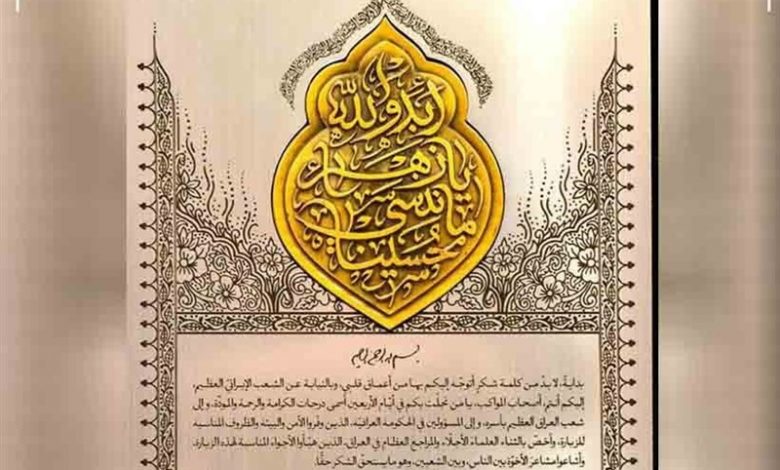 أبد والله
يا زهراء
ما ننسى
حسيناه
بسم الله الرحمن الرحيم
بدايةً، لا بدّ من كلمة شكرٍ أتوجّه إليكم بها من أعماق قلبي، وبالنيابة عن الشعب الإيرانيّ العظيم،
إليكم أنتم أصحاب المواكب، يا من تجلّت بكم في أيّام الأربعين أسمى درجات الكرامة والرحمة والمودّة، وإلى
شعب العراق العظيم بأسره، وإلى المسؤولين في الحكومة العراقيّة، الذين وفّروا الأمن والبيئة والظروف المناسبة
للزيارة، وأخصّ بالثناء العلماء الأجلّاء والمراجع العظام في العراق، الذين هيّأوا الأجواء المناسبة لهذه الزيارة،
وأشاعوا مشاعر الأخوّة بين الناس، وبين الشعبين، وهو ما يستحقّ الشكر حقًّا.